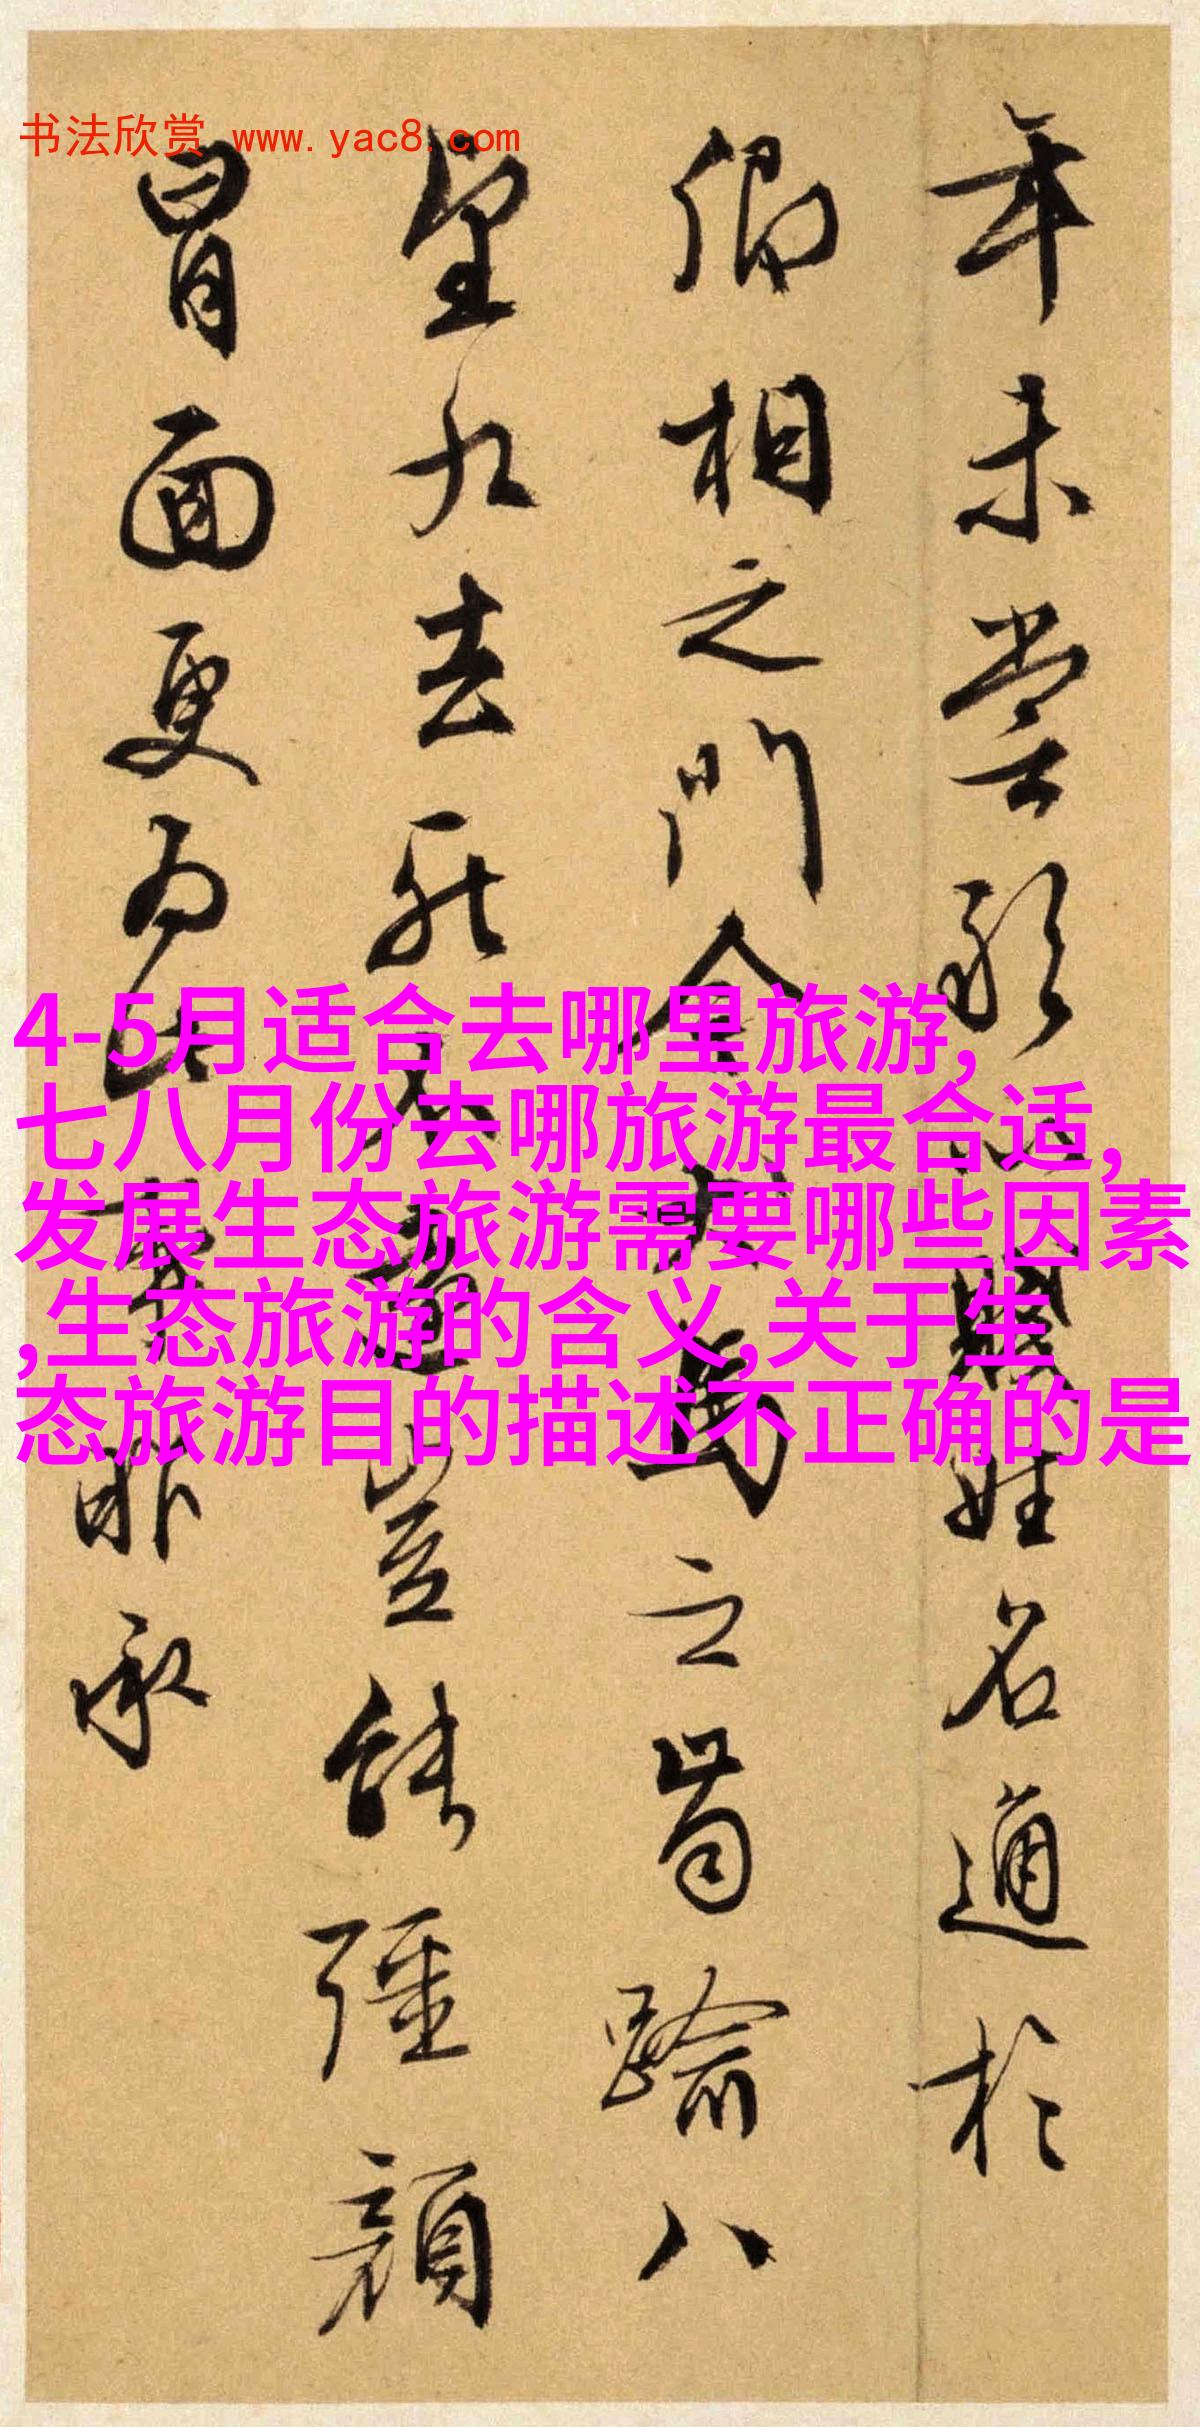 书法欣赏 www.yac8.com
年未尝敢以姓名通於
卿相之門今大馬之齒踰八
望九去死不遠豈能彊顏
冒面更為此事耶承
4-5月适合去哪里旅游,
七八月份去哪旅游最合适,
发展生态旅游需要哪些因素
,生态旅游的含义,关于生
态旅游目的描述不正确的是